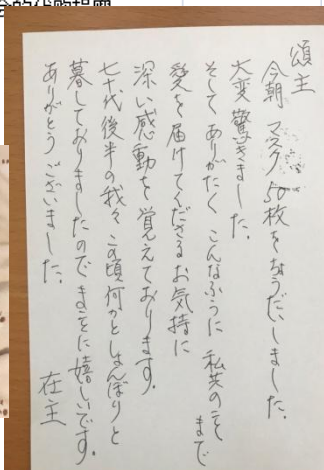 頌主
今朝 マスク50枚をちょうだいしました。
大変驚きました。
そして ありがたく こんなふうに 私共のことまで
愛を届けてくださるお気持に
深い感動を覚えております。
七十代後半の我々 この頃何かとしょんぼりと
暮しておりましたので まことに嬉しいです。
ありがとうございました。
在主